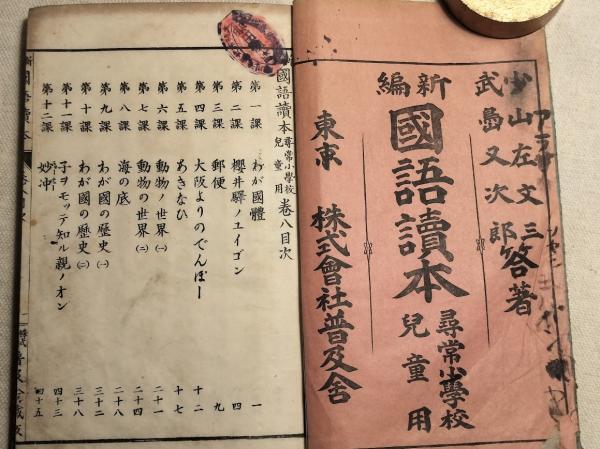 新編
小山左文二
武島又次郎
合著
國語讀本
尋常小學校
兒童用
東京
株式會社普及舍
國語讀本
尋常小學校
兒童用
卷八目次
第一課 わが國體 一
第二課 櫻井驛ノユイゴン 四
第三課 郵便 九
第四課 大阪よりのでんぽー 十二
第五課 あきなひ 十七
第六課 動物ノ世界(一) 二十一
第七課 動物の世界(二) 二十四
第八課 海の底 二十八
第九課 わが國の歷史(一) 三十二
第十課 わが國の歷史(二) 三十八
第十一課 子ヲモッテ知ル親ノオン 四十三
第十二課 妙冲 四十五